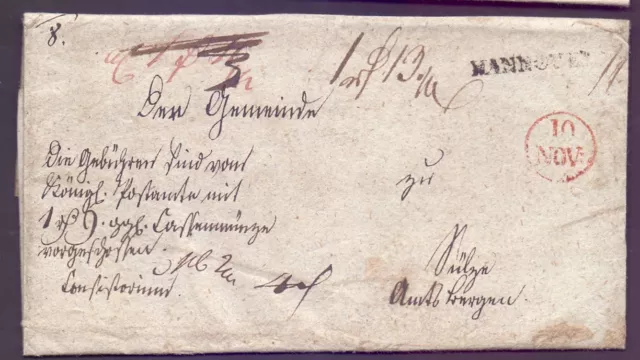 8.
HANNOVER
10
NOV:
Der Gemeinde
zu
Sülze
Amts Bergen.
Die Gebühren sind vom
Königl. Postamte mit
1 rt 9. ggl. Cassenmünze
vorgeschossen.
Consistorium.